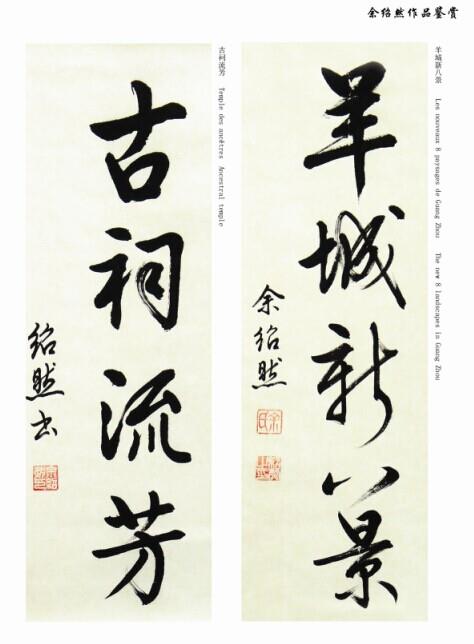 余绍然作品鉴赏
羊城新八景 Les nouveaux 8 paysages de Guang Zhou The new 8 landscapes in Guang Zhou
羊城新八景
余绍然
古祠流芳 Temple des ancêtres Ancestral temple
古祠流芳
绍然书